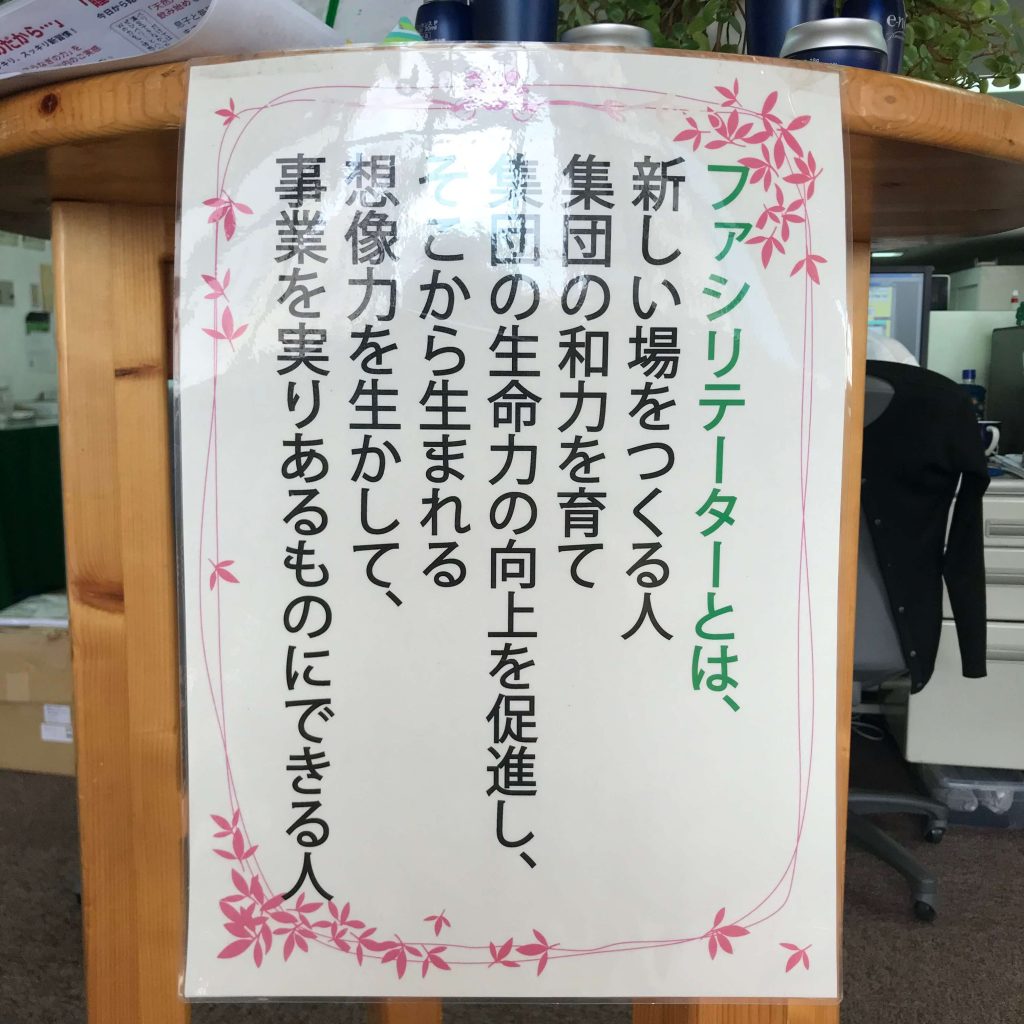 ファシリテーターとは、
新しい場をつくる人
集団の和力を育て
集団の生命力の向上を促進し、
そこから生まれる
想像力を生かして、
事業を実りあるものにできる人
今日から始